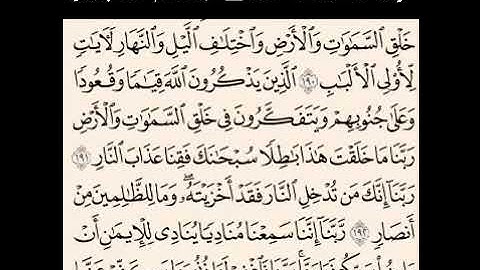 خَلۡقِ ٱلسَّمَٰوَٰتِ وَٱلۡأَرۡضِ وَٱخۡتِلَٰفِ ٱلَّيۡلِ وَٱلنَّهَارِ لَأٓيَٰتٖ
لِّأُوْلِي ٱلۡأَلۡبَٰبِ ١٩٠ ٱلَّذِينَ يَذۡكُرُونَ ٱللَّهَ قِيَٰمٗا وَقُعُودٗا
وَعَلَىٰ جُنُوبِهِمۡ وَيَتَفَكَّرُونَ فِي خَلۡقِ ٱلسَّمَٰوَٰتِ وَٱلۡأَرۡضِ
رَبَّنَا مَا خَلَقۡتَ هَٰذَا بَٰطِلٗا سُبۡحَٰنَكَ فَقِنَا عَذَابَ ٱلنَّارِ ١٩١
رَبَّنَآ إِنَّكَ مَن تُدۡخِلِ ٱلنَّارَ فَقَدۡ أَخۡزَيۡتَهُۥۖ وَمَا لِلظَّٰلِمِينَ مِنۡ
أَنصَارٖ ١٩٢ رَّبَّنَآ إِنَّنَا سَمِعۡنَا مُنَادِيٗا يُنَادِي لِلۡإِيمَٰنِ أَنۡ